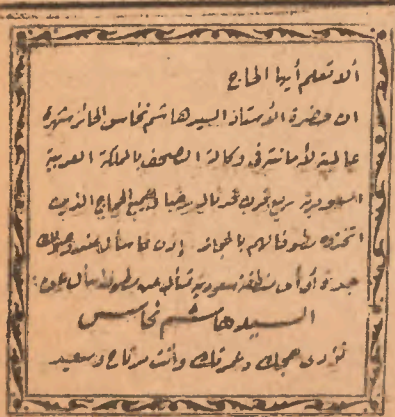 ألا تعلم أيها الحاج
ان حضرة الأستاذ السيد هاشم نحاس الحائز شهرة
عالمية لأمانته في وكالة الصحف بالمملكة العربية
السعودية جميع الحجاج الذين
اتخذوه مطوفا لهم بالحجاز إذن فاسأل عند وصولك
جدة أو أي منطقة سعودية تسأل عن مطوفك اسأل عن:
السيد هاشم نحاس
تؤدى حجك وعمرتك وأنت مرتاح وسعيد